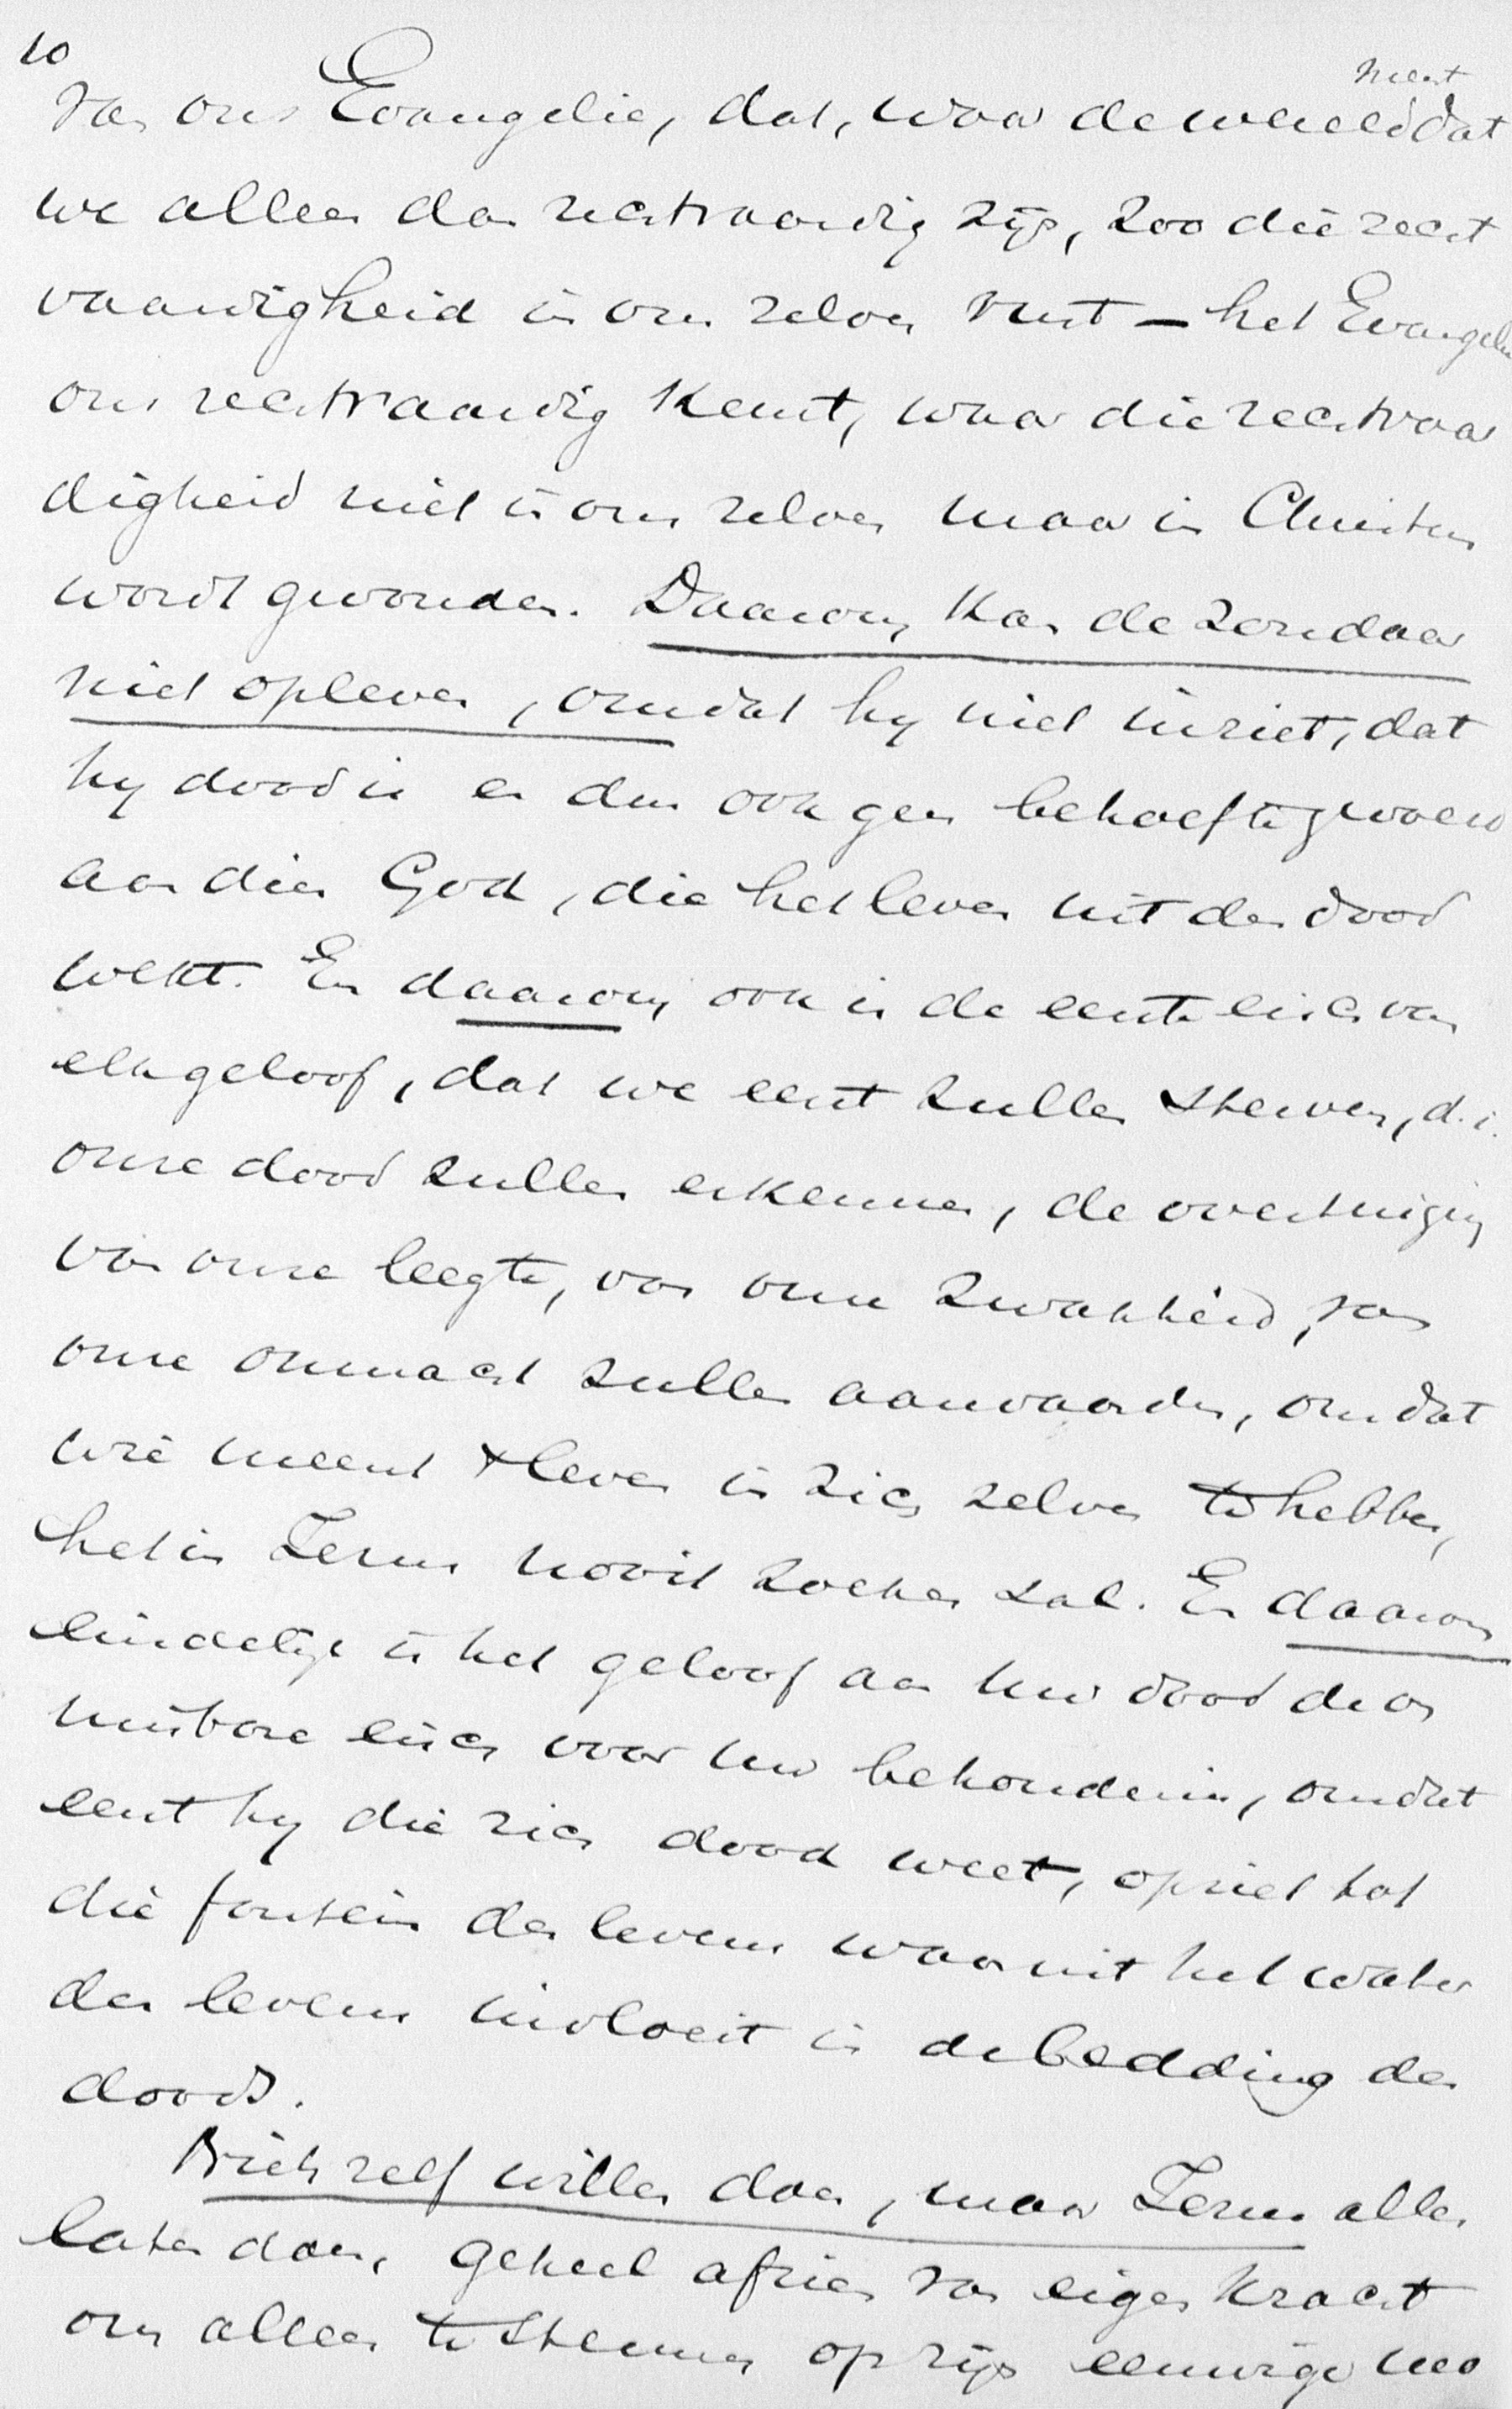 10
meent
van ons Evangelie, dat, waar de wereld dat
we alleen dan rechtvaardig zijn, zoo die recht
vaardigheid in ons zelven rust — het Evangelie
ons rechtvaardig kent, waar die rechtvaar
digheid niet in ons zelven maar in Christus
wordt gevonden. Daarom kan de zondaar
niet opleven, omdat hy niet inziet, dat
hy dood is en dus ook geen behoefte gevoeld
aan dien God, die het leven uit den dood
wekt. En daarom ook is de eerste eisch van
elk geloof, dat we eerst zullen sterven, d.i.
onze dood zullen erkennen, de overtuiging
van onze leegte, van onze zwakheid, van
onze onmacht zullen aanvaarden, omdat
wie meent 't leven in zich zelven te hebben,
het in Jezus nooit zoeken zal. En daarom
eindelijk is het geloof aan uw dood de on
misbare eisch voor uw behoudenis, omdat
eerst hy die zich dood weet, opziet tot
die fontein des levens waaruit het water
des levens invloeit in de bedding des
doods.
Niets zelf willen doen, maar Jezus alles
laten doen, geheel afzien van eigen kracht
om alleen te steunen op zijn eeuwige mo